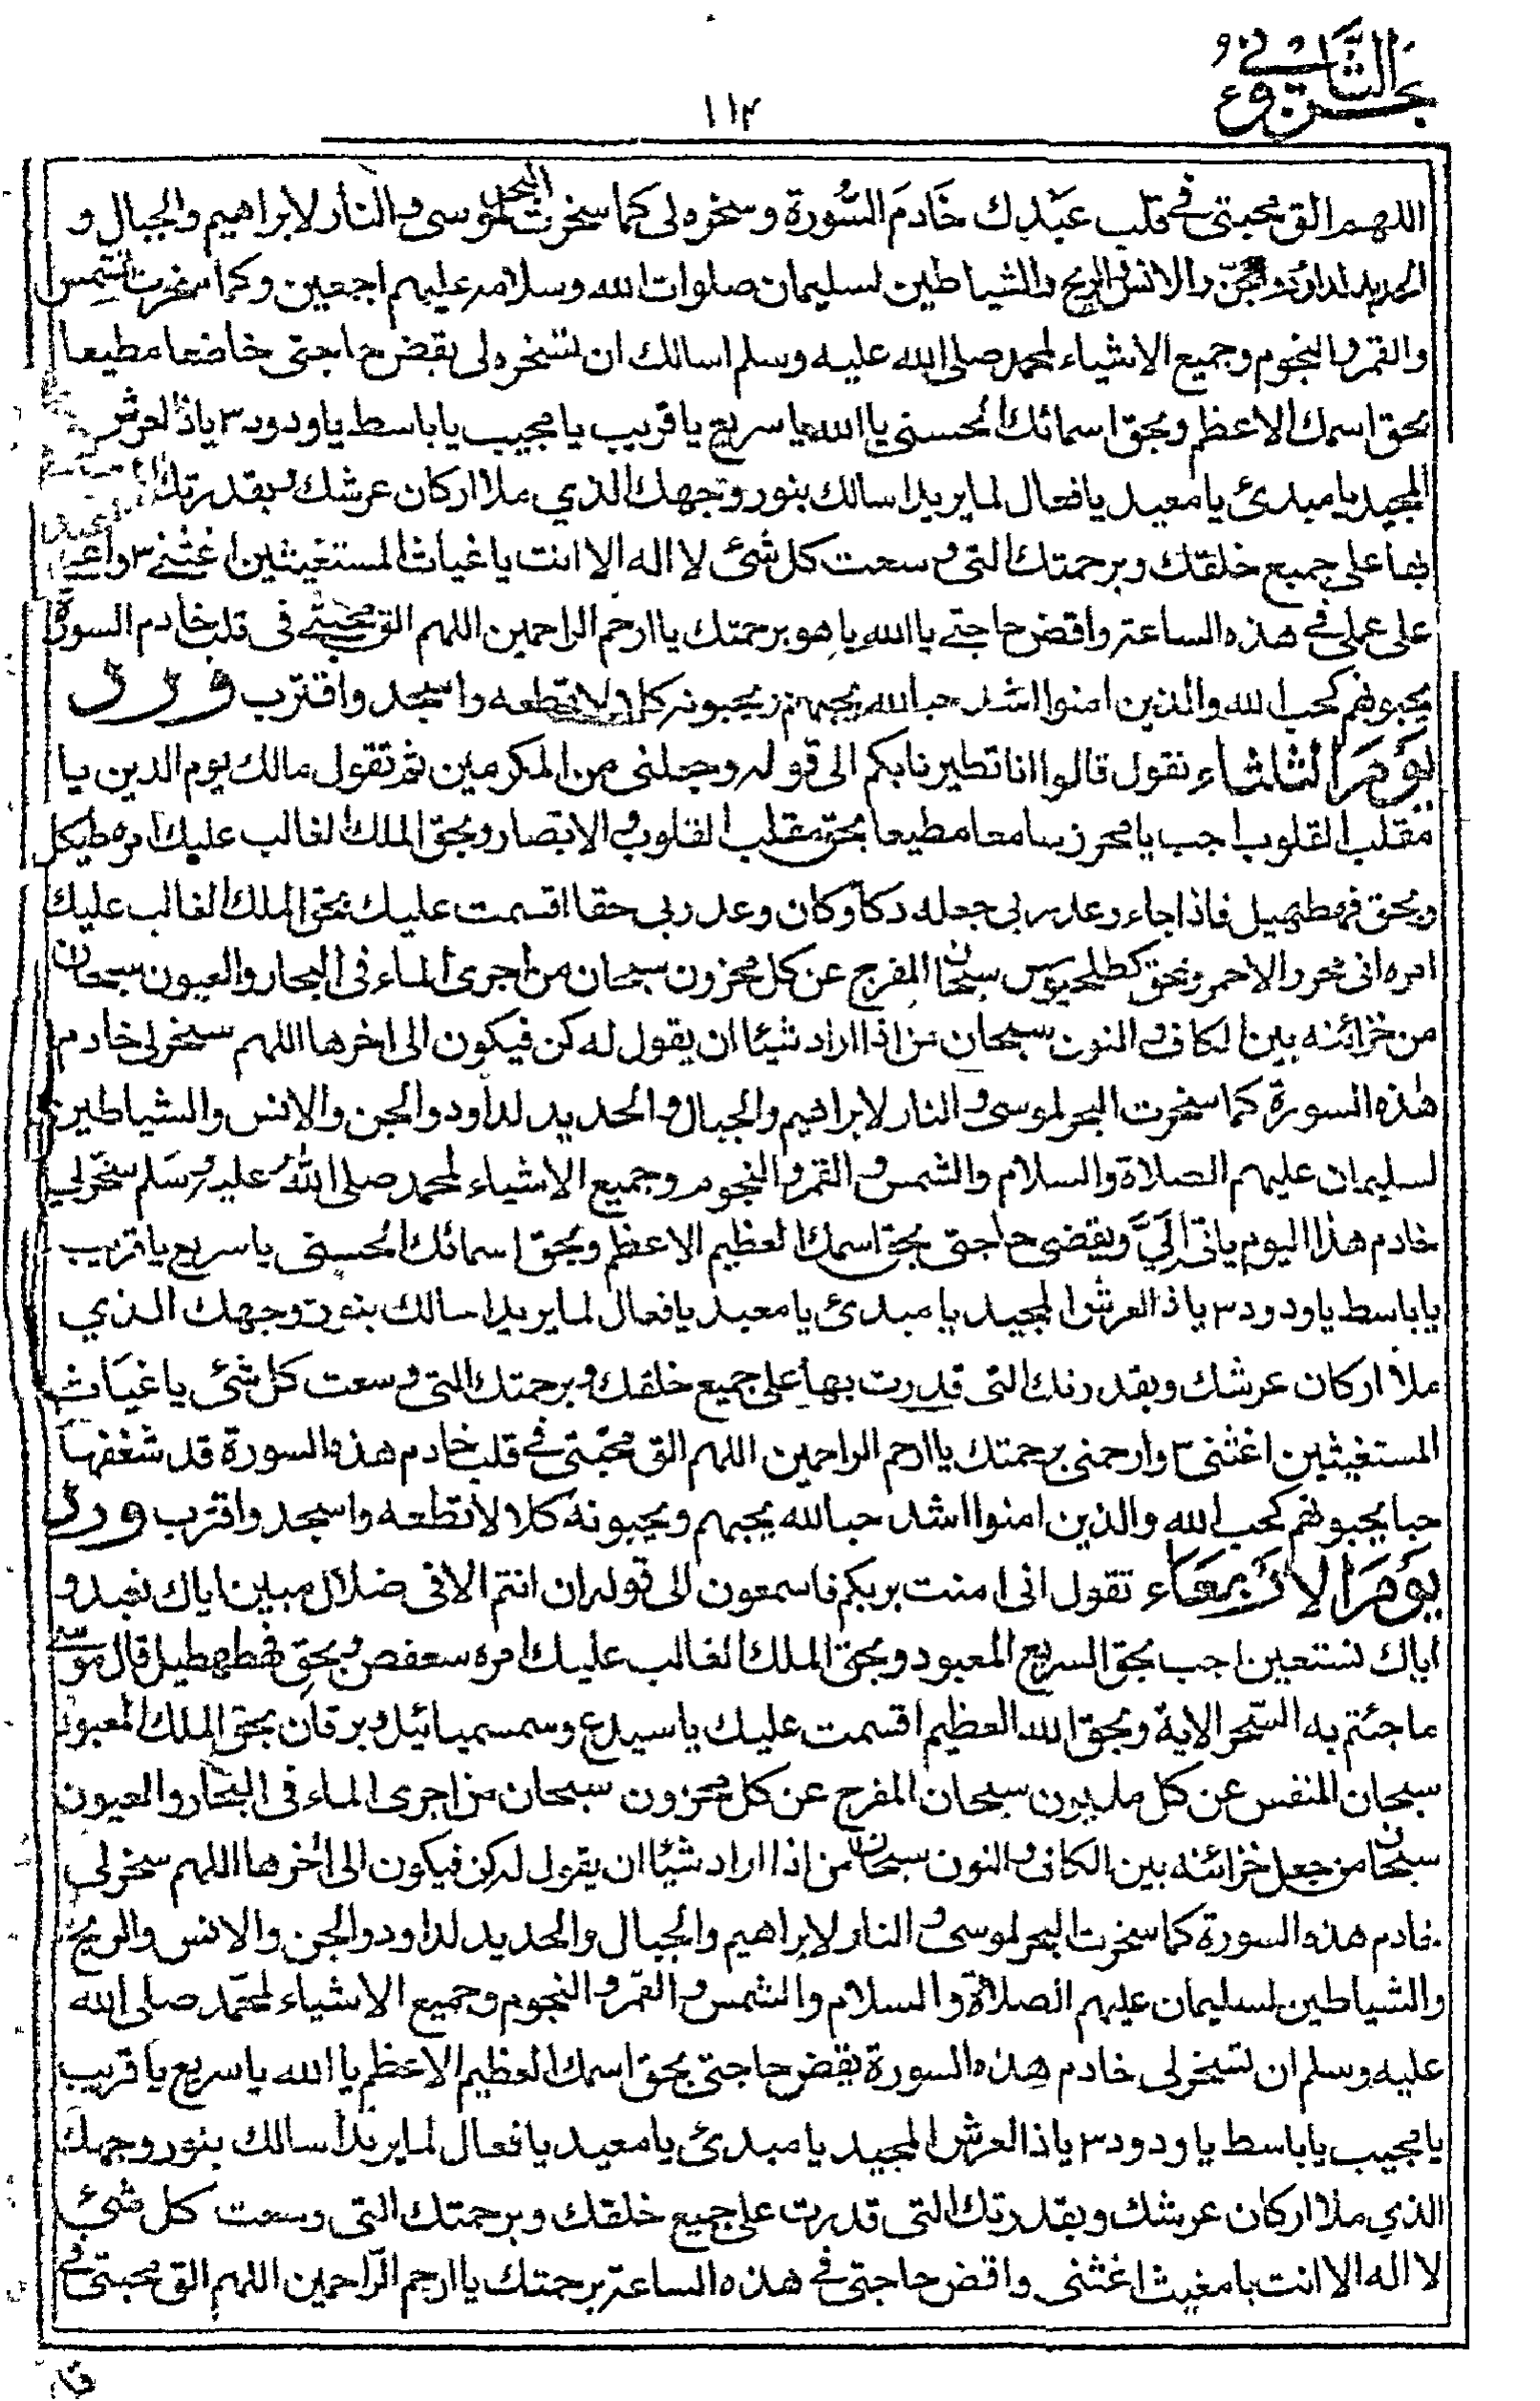 الجزء الثاني
١١٢
اللهم الق محبتى فى قلب عبدك خَادمَ السُّورة وسخره لى كما سخرت البحر لموسى والنار لابراهيم والجبال و
الحديد لداود والجن والانس والريح والشياطين لسليمان صلوات الله وسلامه عليهم اجمعين وكما سخرت الشمس
والقمر والنجوم وجميع الاشياء لمحمد صلى الله عليه وسلم اسالك ان تسخره لى بقض حاجتى خاضعا مطيعا
بحق اسمك الاعظم وبحق اسمائك الحسنى يا الله يا سريع يا قريب يا مجيب يا باسط يا ودود ٣ يا ذا العرش
المجيد يا مبدئ يا معيد يا فعال لما يريد اسالك بنور وجهك الذي ملا اركان عرشك وبقدرتك
بها على جميع خلقك وبرحمتك التى وسعت كل شئ لا اله الا انت يا غياث المستغيثين اغثنى ٣ واعنى
على عملى فى هذه الساعة واقض حاجتى يا الله يا هو برحمتك يا ارحم الراحمين اللهم الق محبتى فى قلب خادم السورة
يحبونهم كحب الله والذين امنوا اشد حبا لله يحبهم ويحبونه كلا لا تطعه واسجد واقترب ورد
يَوْمَ الثلثاء تقول قالوا انا تطيرنا بكم الى قوله وجعلنى من المكرمين ثم تقول مالك يوم الدين يا
مقلب القلوب اجب يا محرز سامعا مطيعا بحق مقلب القلوب والابصار وبحق الملك الغالب عليك امره طيكل
وبحق فهطهيل فاذا جاء وعد ربى جعله دكا وكان وعد ربى حقا اقسمت عليك بحق الملك الغالب عليك
امره ابى محرز الاحمر وبحق سبحان المفرج عن كل محزون سبحان من اجرى الماء فى البحار والعيون سبحان
من خزائنه بين الكاف والنون سبحان من اذا اراد شيئا ان يقول له كن فيكون الى اخرها اللهم سخر لى خادم
هذه السورة كما سخرت البحر لموسى والنار لابراهيم والجبال والحديد لداود والجن والانس والشياطين
لسليمان عليهم الصلاة والسلام والشمس والقمر والنجوم وجميع الاشياء لمحمد صلى اللهُ عليه وسَلم سخر لى
خادم هذا اليوم ياتى الَيَّ ويقضى حاجتى بحق اسمك العظيم الاعظم وبحق اسمائك الحسنى يا سريع يا قريب
يا باسط يا ودود ٣ يا ذا العرش المجيد يا مبدئ يا معيد يا فعال لما يريد اسالك بنور وجهك الذي
ملا اركان عرشك وبقدرتك التى قدرت بها على جميع خلقك وبرحمتك التى وسعت كل شئ يا غيَاث
المستغيثين اغثنى ٣ وارحمنى برحمتك يا ارحم الراحمين اللهم الق محبتى فى قلب خادم هذه السورة قد شغفها
حبا يحبونهم كحب الله والذين امنوا اشد حبا لله يحبهم ويحبونه كلا لا تطعه واسجد واقترب ورد
يَوْمَ الاربعاء تقول انى امنت بربكم فاسمعون الى قوله ان انتم الا فى ضلال مبين اياك نعبد و
اياك نستعين اجب بحق السريع المعبود وبحق الملك الغالب عليك امره سعفص وبحق فهطهطيل قال موسى
ما جئتم به السّحر الاية وبحق الله العظيم اقسمت عليك يا سيدع وسمسميائيل وبرقان بحق الملك المعبود
سبحان المنفس عن كل مديون سبحان المفرج عن كل محزون سبحان من اجرى الماء فى البحار والعيون
سبحان من جعل خزائنه بين الكاف والنون سبحان من اذا اراد شيئا ان يقول له كن فيكون الى اخرها اللهم سخر لى
خادم هذه السورة كما سخرت البحر لموسى والنار لابراهيم والجبال والحديد لداود والجن والانس والريح
والشياطين لسليمان عليهم الصلاة والسلام والشمس والقمر والنجوم وجميع الاشياء لمحمد صلى الله
عليه وسلم ان تسخر لى خادم هذه السورة بقض حاجتى بحق اسمك العظيم الاعظم يا الله يا سريع يا قريب
يا مجيب يا باسط يا ودود ٣ يا ذا العرش المجيد يا مبدئ يا معيد يا فعال لما يريد اسالك بنور وجهك
الذي ملا اركان عرشك وبقدرتك التى قدرت على جميع خلقك وبرحمتك التى وسعت كل شئ
لا اله الا انت يا مغيث اغثنى واقض حاجتى فى هذه الساعة برحمتك يا ارحم الرّاحمين اللهم الق محبتى فى